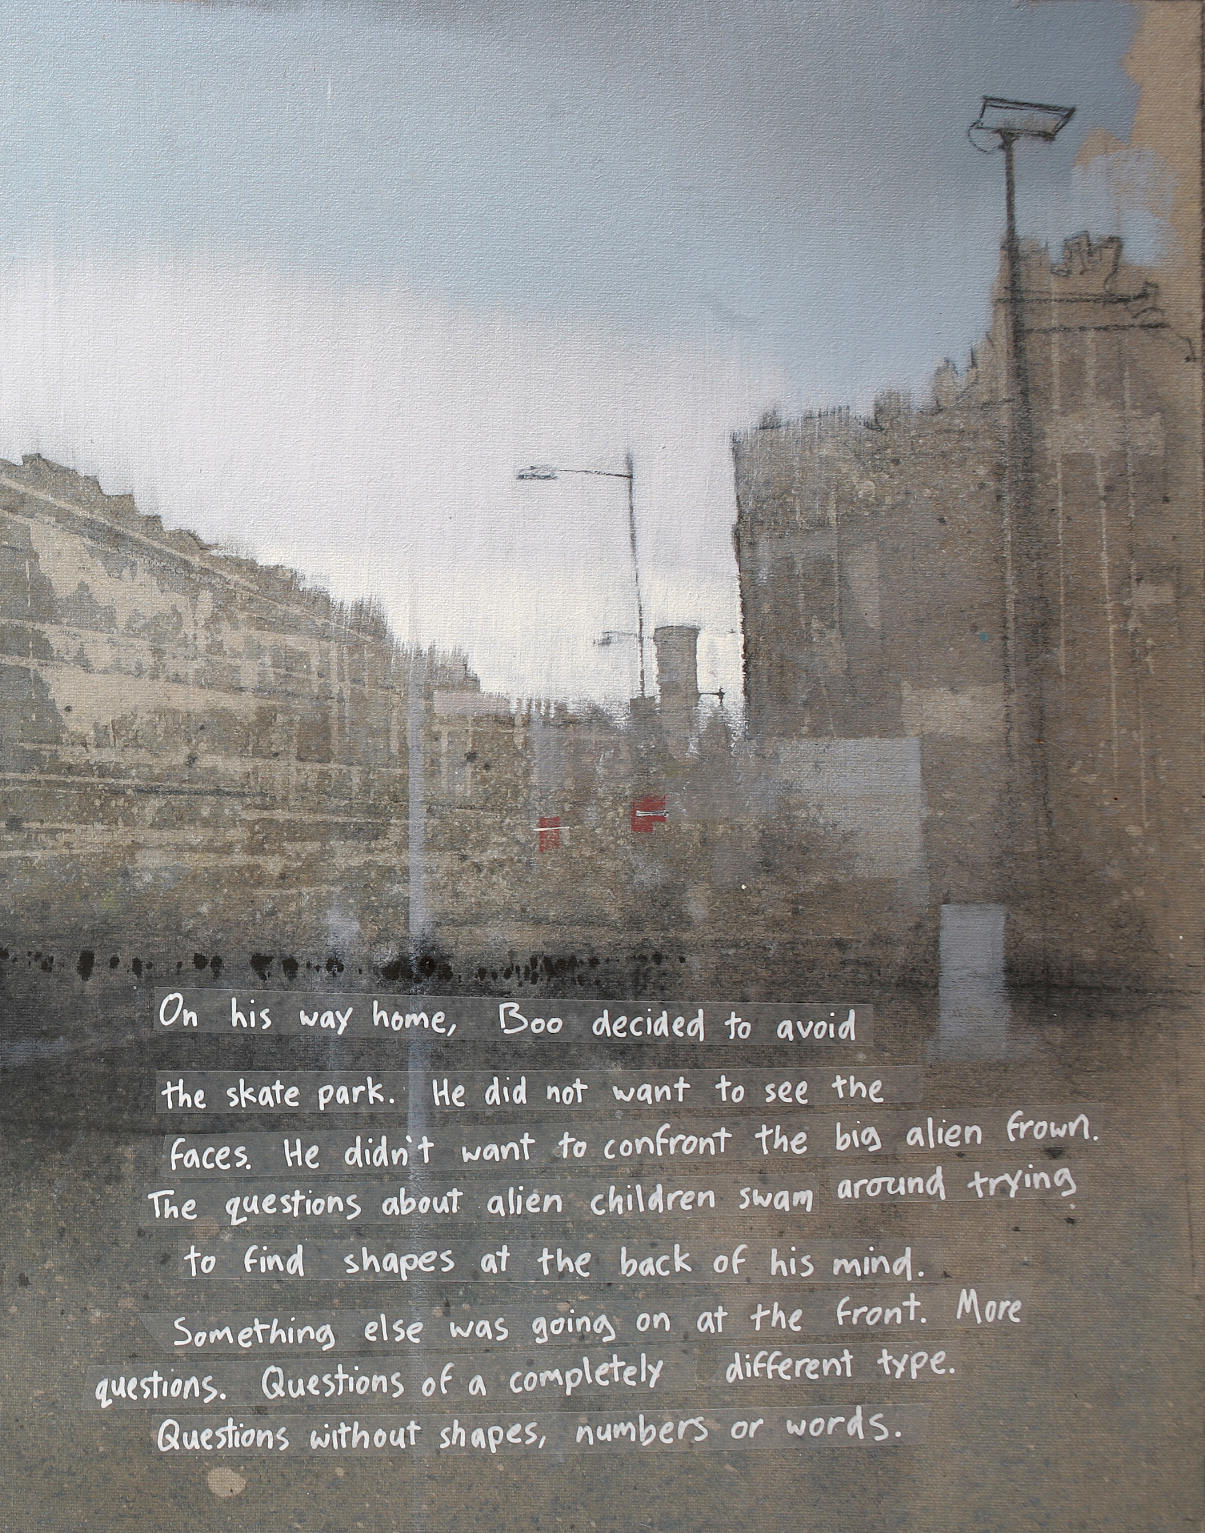 On his way home, Boo decided to avoid
the skate park. He did not want to see the
faces. He didn't want to confront the big alien frown.
The questions about alien children swam around trying
to find shapes at the back of his mind.
Something else was going on at the front. More
questions. Questions of a completely different type.
Questions without shapes, numbers or words.